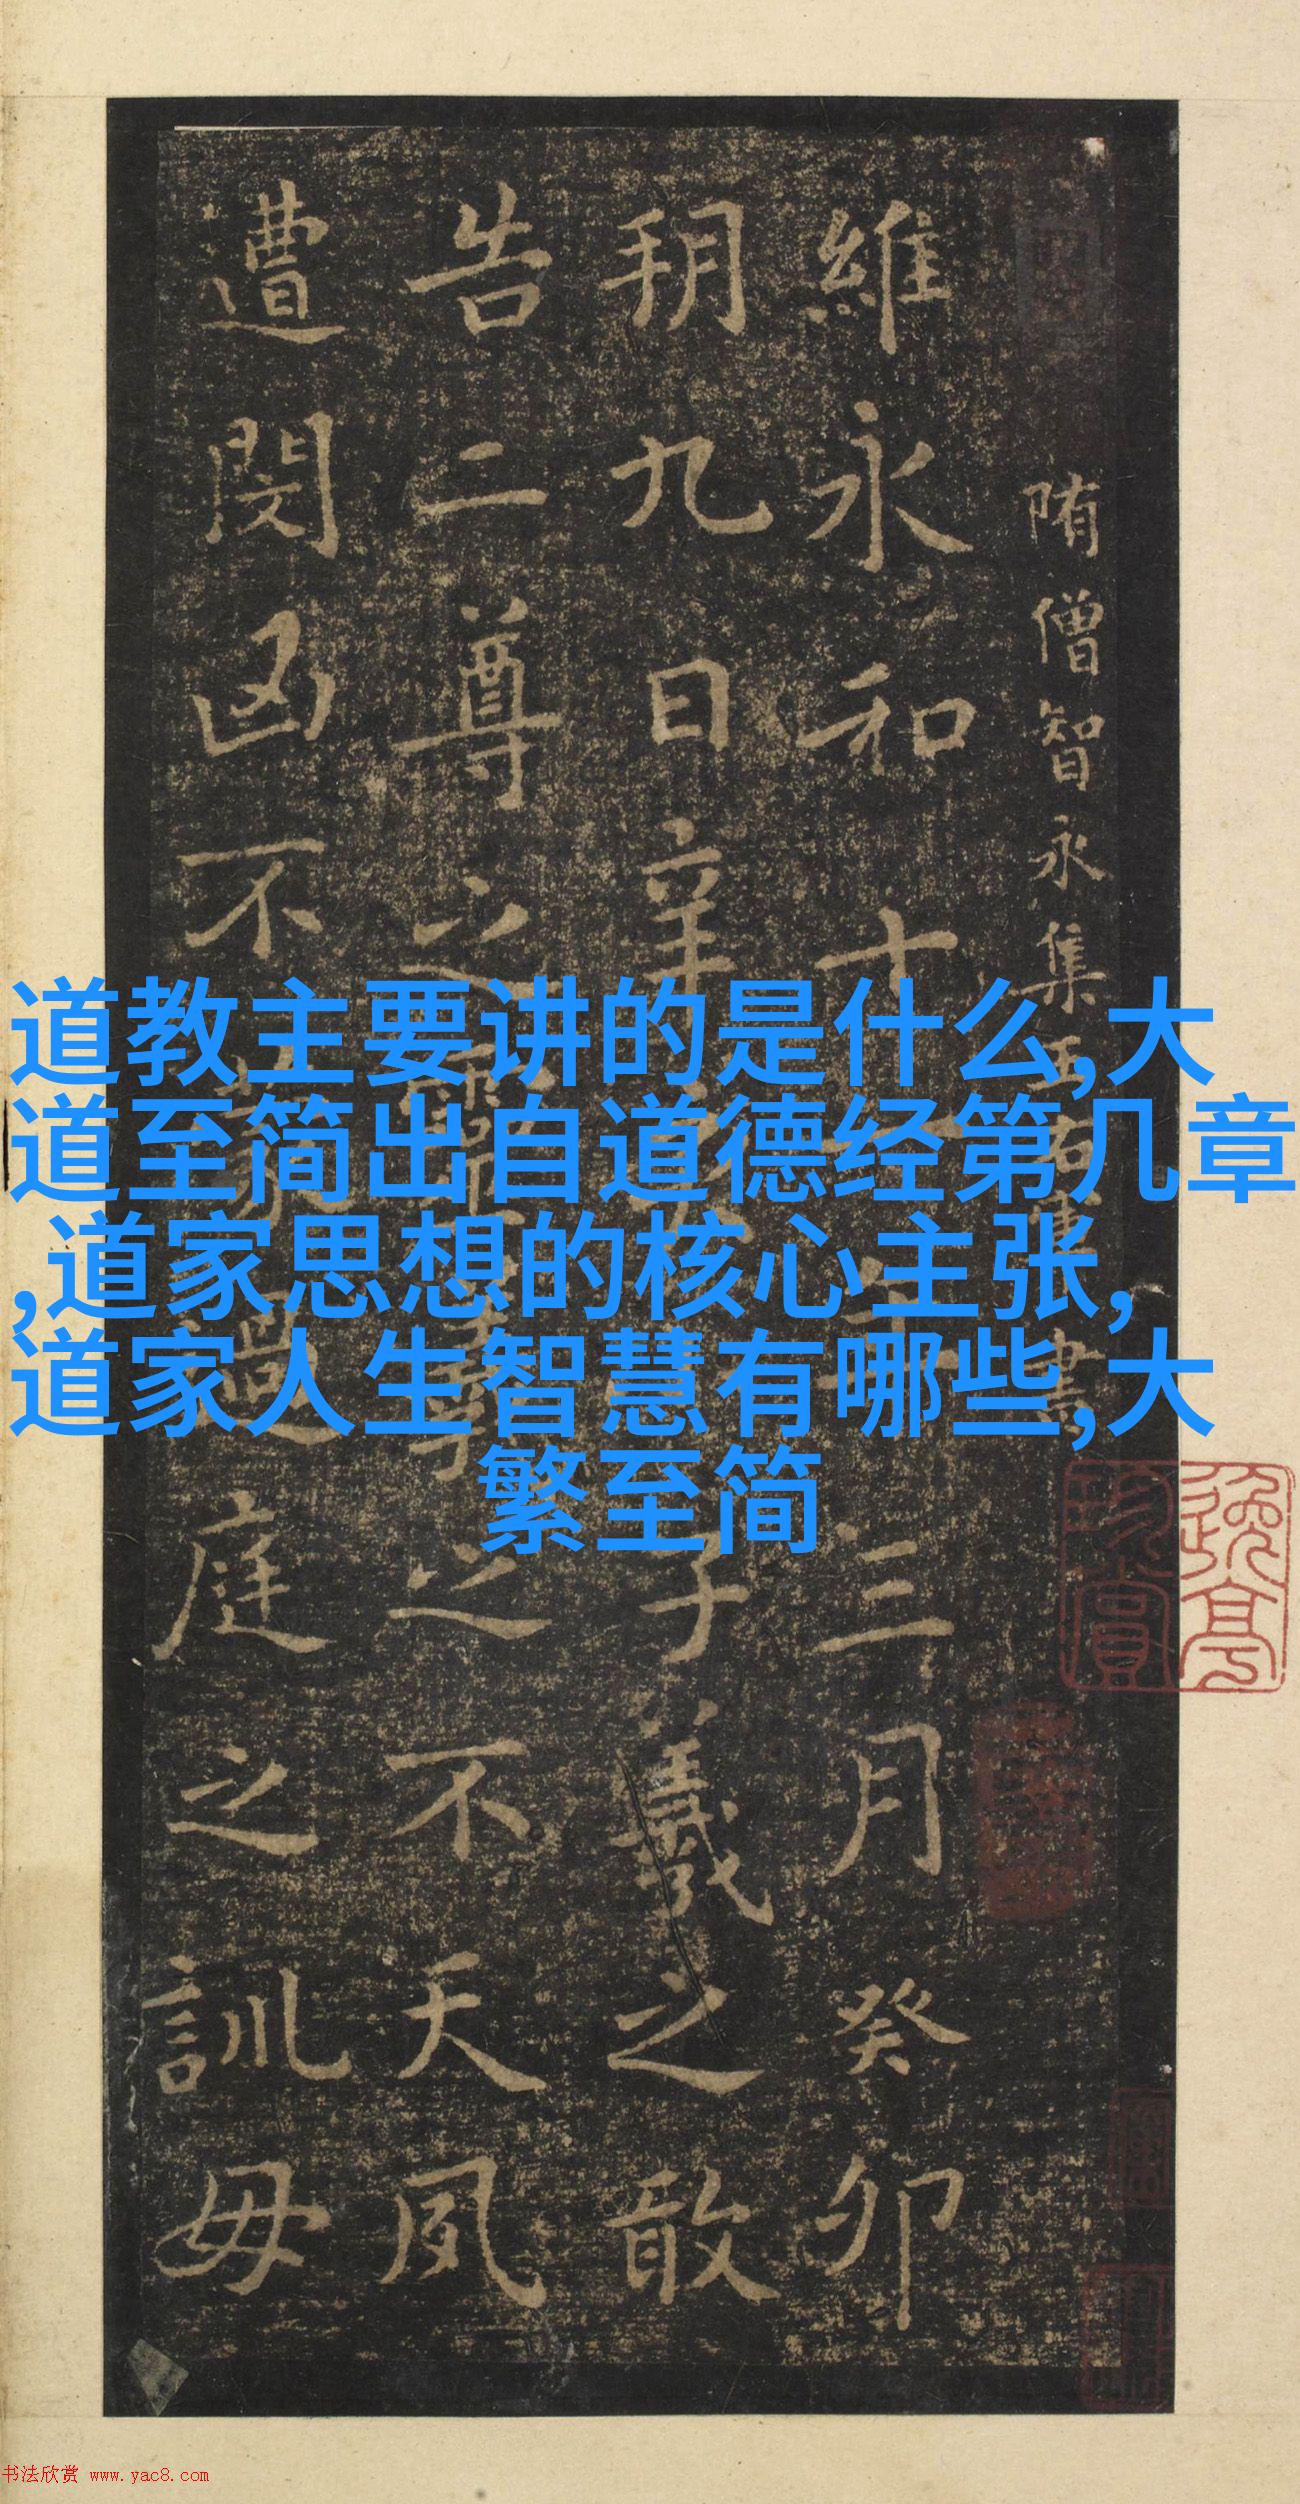 隋僧智永集王右軍書
維永和十一年三月癸卯
朔九日辛亥小子羲之敢
告二尊之靈羲之不天夙
遭閔凶不蒙過庭之訓毋
道教主要讲的是什么,大
道至简出自道德经第几章
,道家思想的核心主张,
道家人生智慧有哪些,大
繁至简
珍賞
书法欣赏 www.yac8.com